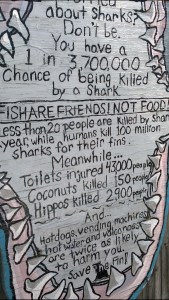 about Sharks?
Don't be.
You have a
1 in 3,700,000
Chance of being killed
by a Shark.
FISH ARE FRIENDS! NOT FOOD!
Less than 20 people are killed by Shark
year, while humans kill 100 million
sharks for their fins.
Meanwhile...
Toilets injured 43000 people
Coconuts killed 150 people
Hippos killed 2,900 people
And...
Hotdogs, vending machines,
hot water and volcanoes
are twice as likely
to harm you.
Save the Fin!